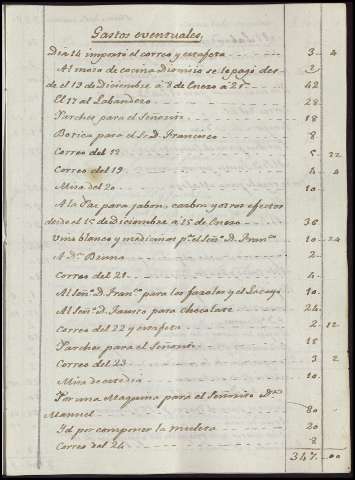 Gastos eventuales,
Dia 14 importó el correo y estafeta 3 4
Al moso de cocina Dionisio se le pagó des
de el 19 de Diciembre a 8 de Enero a 2 r.s 42
El 17 al Labandero 28
Parches para el Señorito 18
Botica para el S.r D. Francisco 8
Correo del 18 5 22
Correo del 19 4 4
Misa del 20 10
A la para jabon, carbon y otros efectos
desde el 15 de Diciembre a 15 de Enero 36
Vino blanco y medicinas p.a el Señ.r D. Fran.co 10 24
A D.a Bruna 2
Correo del 21 4
Al Señ.r D. Fran.co para los y el Lacayo 10
Al Señ.r D. para chocolate 24
Correo del 22 y estafeta 2 12
Parches para el Señorito 18
Correo del 23 3 2
Misa de este dia 10
Por una Maquina para el Señorito D.n
Manuel 80
Id por componer la muleta 20
Correo del 24 8
347 00